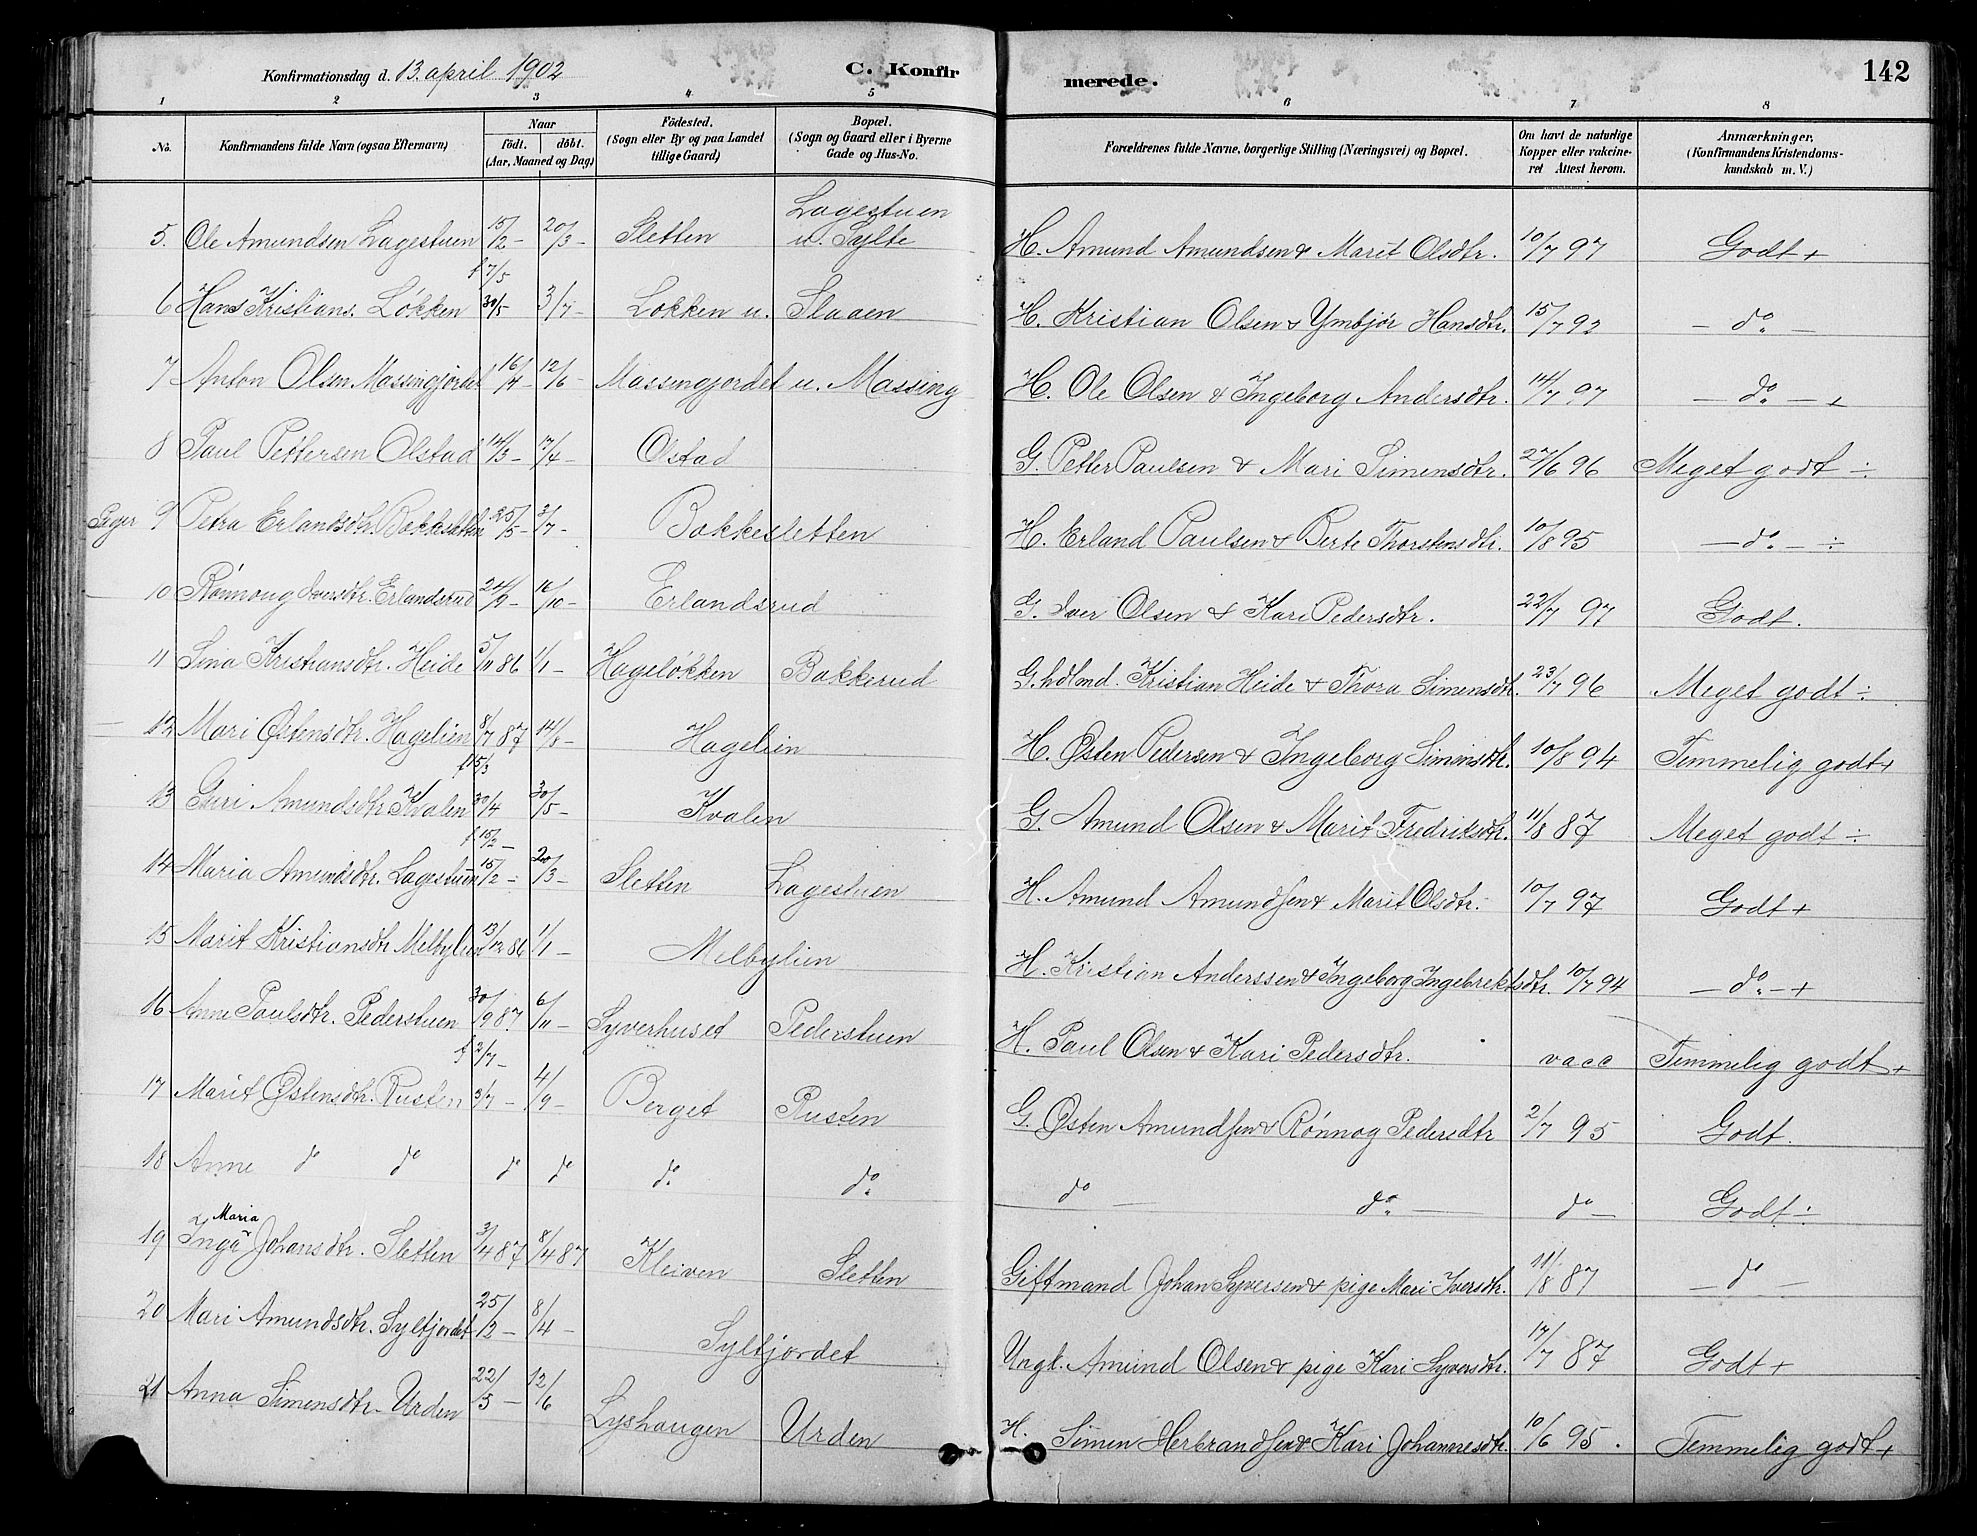 Konfirmationsdag d. 13. april 1902
C. Konfir
merede.
142
1 2 3 4 5 6 7 8
No. Konfirmandens fulde Navn (ogsaa Efternavn) Naar født. døbt. (Aar, Maaned og Dag) Födested. (Sogn eller By og paa Landet tillige Gaard) Bopæl. (Sogn og Gaard eller i Byerne Gade og Hus-No. Forældrenes fulde Navne, borgerlige Stilling (Næringsvei) og Bopæl. Om havt de naturlige Kopper eller vakcineret Attest herom. Anmærkninger, (Konfirmandens Kristendomskundskab m. V.)
5. Ole Amundsen Lagestuen 15/2 – 20/3 – Sletten Lagestuen u. Sylte H. Amund Amundsen & Marit Olsdtr. 10/7 97 Godt +
6 Hans Kristians. Løkken f 7/5 30/5 3/7 – Løkken u. Slaaen H. Kristian Olsen & Ymbjør Hansdtr. 15/7 92 – do –
7 Anton Olsen Massingjordet 16/4 – 12/6 – Massingjordet u. Massing H. Ole Olsen & Ingeborg Andersdtr. 14/7 97 – do – +
8 Paul Pettersen Olstad 14/3 – 17/4 – Olstad G. Petter Paulsen & Mari Simensdtr. 27/6 96 Meget godt ÷
9 Petra Erlandsdtr. Bakkesletten 25/5 – 3/7 – Bakkesletten H. Erland Paulsen & Berte Thorstensdtr. 10/8 95 – do – ÷
10 Rønnoug Iversdtr. Erlandsrud 24/9 – 16/10 – Erlandsrud G. Iver Olsen & Kari Pedersdtr. 22/7 97 Godt.
11 Sina Kristiansdtr. Heide 5/11 86 1/1 – Hageløkken Bakkerud G. hdlmd. Kristian Heide & Thora Simensdtr. 23/7 96 Meget godt ÷
12 Mari Østensdtr. Hagelien 8/7 87 14/8 – Hagelien H. Østen Pedersen & Ingeborg Simensdtr. 10/8 94 Temmelig godt +
13 Guri Amundsdtr Kvalen f 15/3 30/4 30/5 – Kvalen G. Amund Olsen & Marit Fredriksdtr. 11/8 87 Meget godt ÷
14 Maria Amundsdtr. Lagestuen f 15/2 – 15/2 – 20/3 – Sletten Lagestuen H. Amund Amundsen & Marit Olsdtr. 10/7 97 Godt +
15 Marit Kristiansdtr Melbylien 13/12 86 1/1 – Melbylien H. Kristian Anderssen & Ingeborg Ingebrektsdtr. 10/7 94 – do – +
16 Anne Paulsdtr. Pederstuen 30/9 87 6/11 – Syverhuset Pederstuen H. Paul Olsen & Kari Pedersdtr. vacc Temmelig godt +
17 Marit Østensdtr. Rusten f 2/7 – 3/7 – 4/9 – Berget Rusten G. Østen Amundsen & Rønnog Pedersdtr 2/7 95 Godt.
18 Anne do do do do do do do – do – do – Godt ÷
19 Inga Maria Johansdtr. Sletten 3/4 87 8/4 87 Kleiven Sletten Giftmand Johan Syversen & pige Mari Iversdtr. 11/8 87 – do –
20 Mari Amundsdtr. Syltjordet 25/2 – 8/4 – Syltjordet Ungk. Amund Olsen & pige Kari Syversdtr. 17/7 87 Godt +
21 Anna Simensdtr. Urden 22/5 – 12/6 Lyshaugen Urden H. Simen Herbrandsen & Kari Johannesdtr. 10/6 95. Temmelig godt +